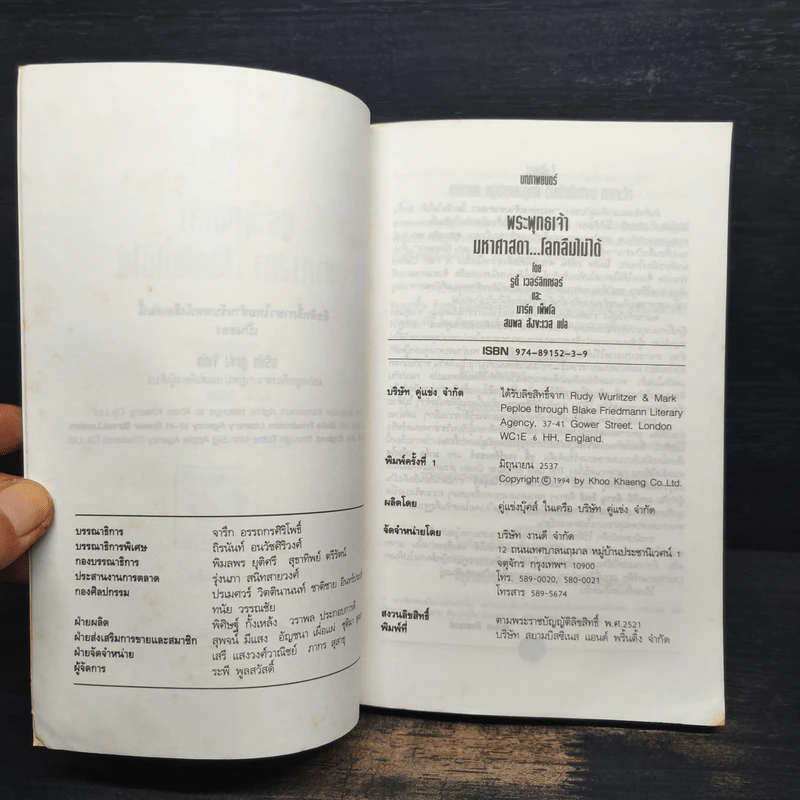 บรรณาธิการ จารึก อรรถกรศิริโพธิ์
บรรณาธิการพิเศษ ถิรนันท์ อนวัชศิริวงศ์
กองบรรณาธิการ พิมลพร ยุติศรี สุธาทิพย์ ตรีรัตน์
ประสานงานการตลาด รุ่งนภา สนิทสายวงศ์
กองศิลปกรรม ปรเมศวร์ วิตตินานนท์ ชาติชาย
ทนัย วรรณเชัย
ฝ่ายผลิต พิศิษฐ์ ทั้งเหล้ง วราพล ประกอบการดี
ฝ่ายส่งเสริมการขายและสมาชิก สุพจน์ มีแสง อัญชนา เผื่อแผ่
ฝ่ายจัดจำหน่าย เสรี แสงวงศ์วาณิชย์ ภากร
ผู้จัดการ ระพี พูลสวัสดิ์
บทภาพยนตร์
พระพุทธเจ้า
มหาศาสดา...โลกลืมไม่ได้
โดย
รูดี้ เวอร์ลิทเซอร์
และ
มาร์ค เพ็พโล
สมพล สังขะเวส แปล
ISBN 974-89152-3-9
บริษัท คู่แข่ง จำกัด ได้รับลิขสิทธิ์จาก Rudy Wurlitzer & Mark
Peploe through Blake Friedmann Literary
Agency, 37-41 Gower Street, London
WC1E 6 HH, England.
พิมพ์ครั้งที่ 1 มิถุนายน 2537
Copyright © 1994 by Khoo Khaeng Co.,Ltd.
ผลิตโดย คู่แข่งบุ๊คส์ ในเครือ บริษัท คู่แข่ง จำกัด
จัดจำหน่ายโดย บริษัท งานดี จำกัด
12 ถนนเทศบาลนฤมาล หมู่บ้านประชานิเวศน์ 1
จตุจักร กรุงเทพฯ 10900
โทร. 589-0020, 580-0021
โทรสาร 589-5674
สงวนลิขสิทธิ์ ตามพระราชบัญญัติลิขสิทธิ์ พ.ศ.2521
พิมพ์ที่ บริษัท สยามบิสซิเนส แอนด์ พริ้นติ้ง จำกัด